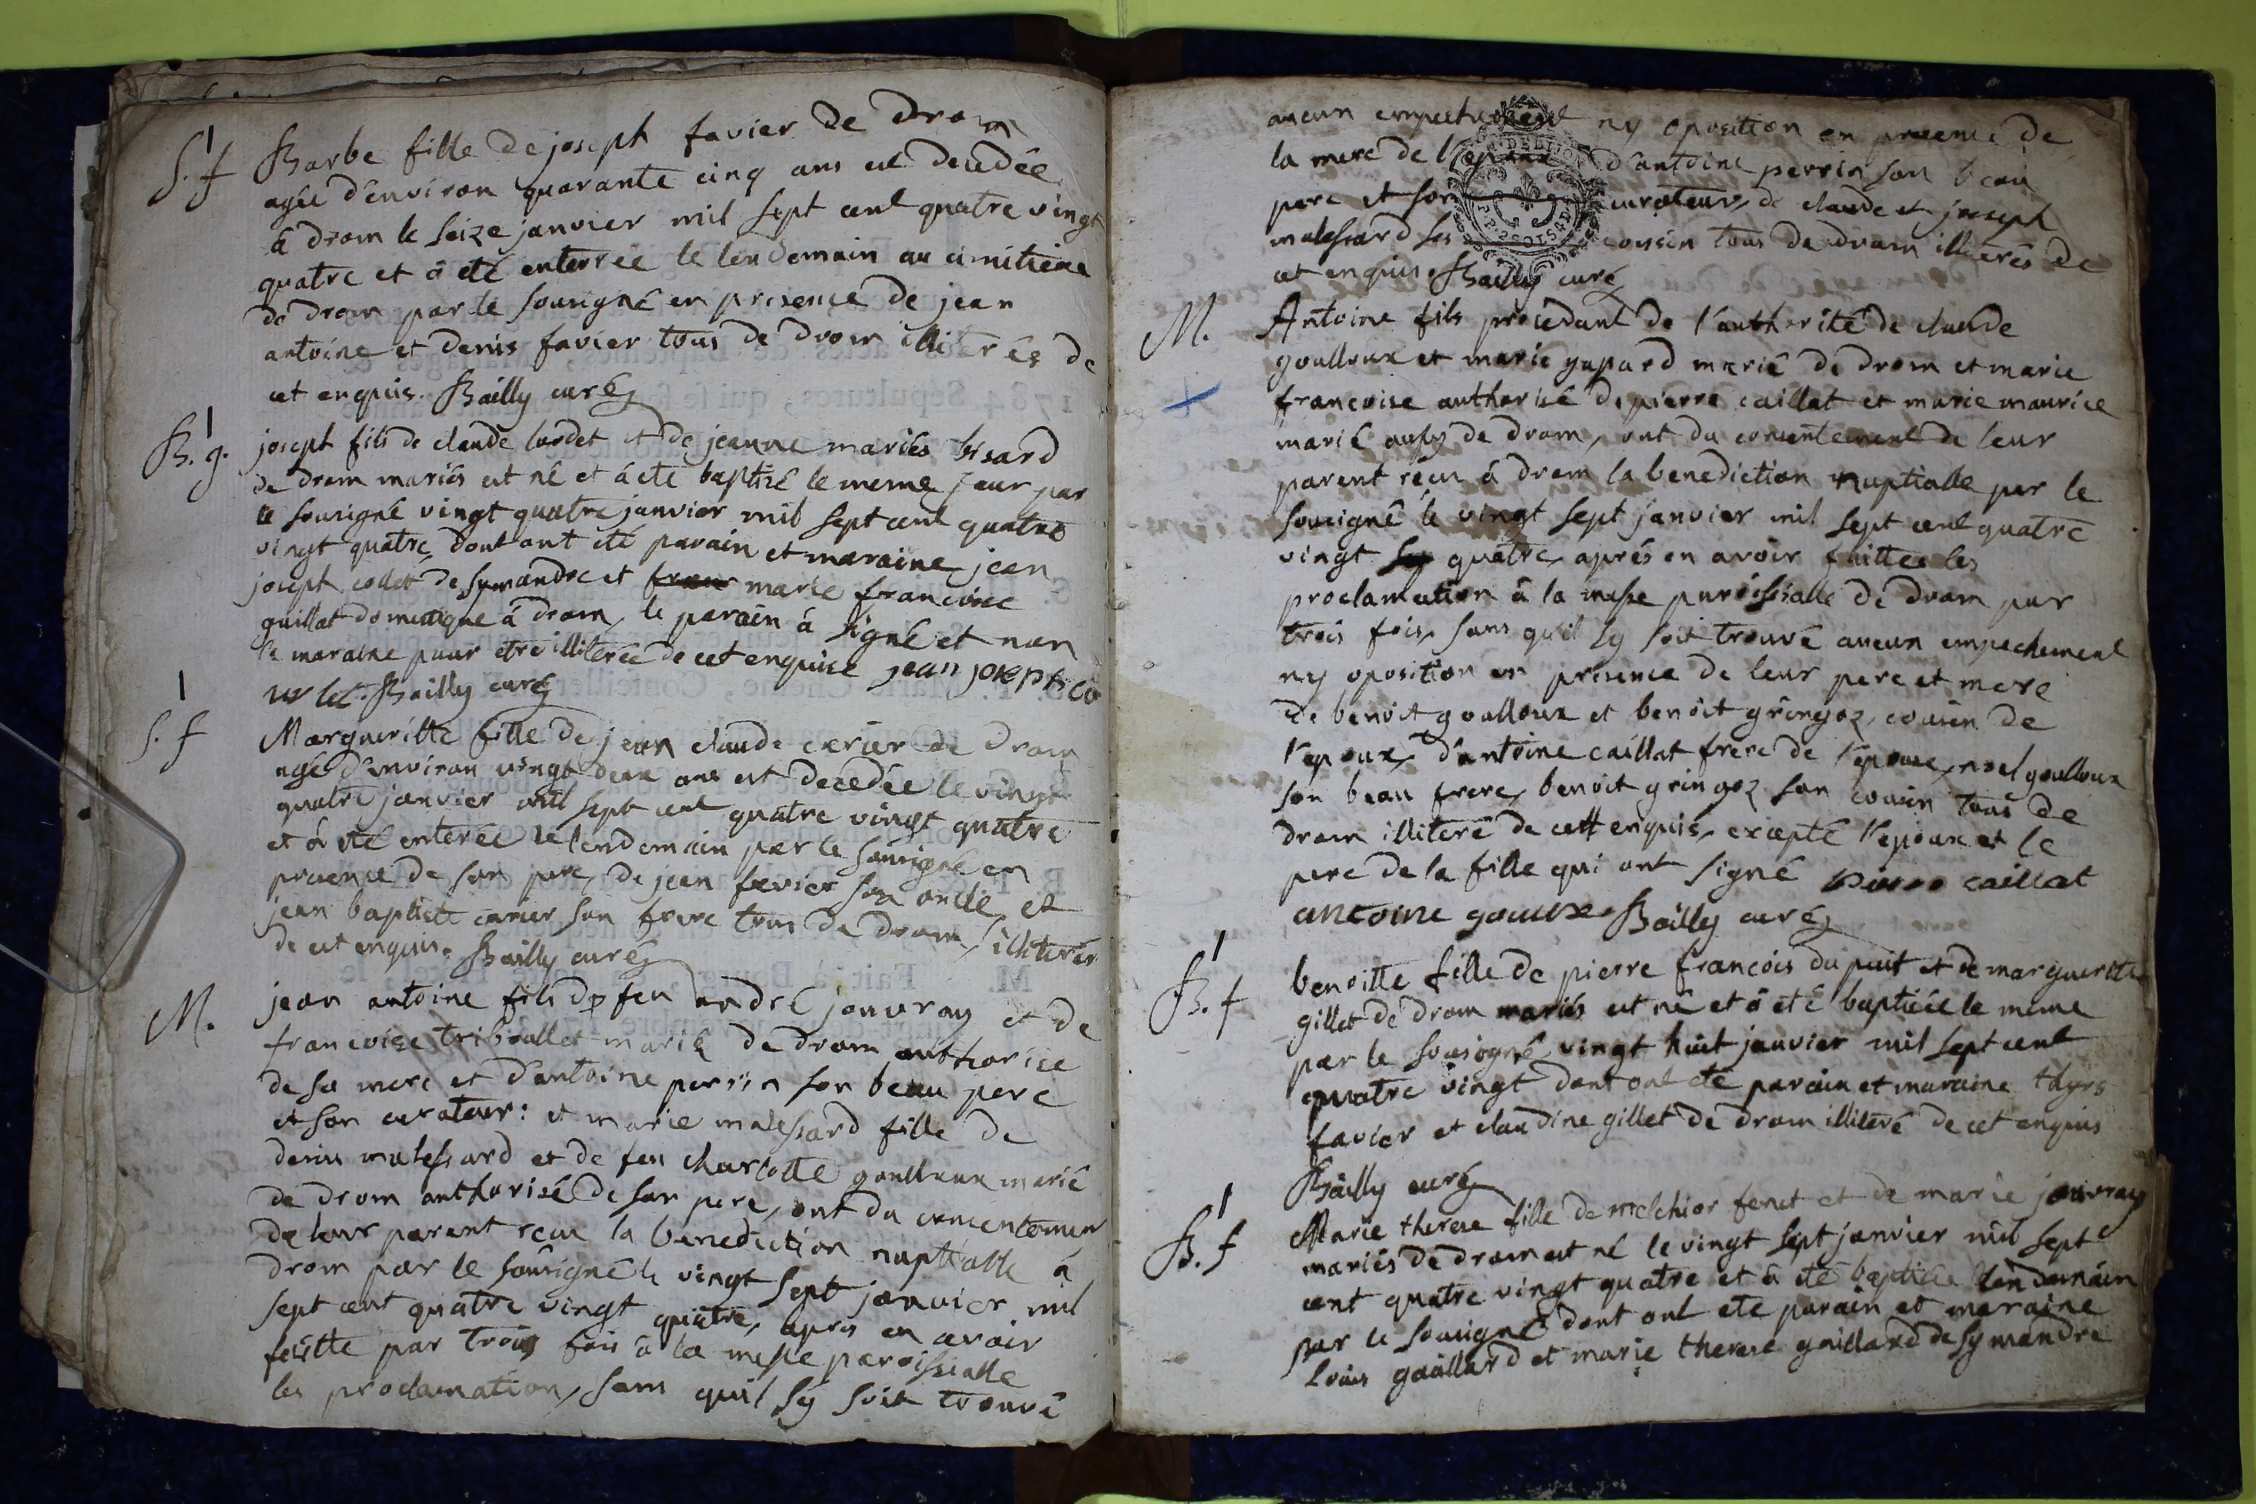 1
S. f Barbe fille de joseph favier de drom
agée d'environ quarante cinq ans est decedée
à drom le seize janvier mil sept cent quatre vingt
quatre et â eté enterrée le lendemain au cimitiere
de drom par le sousigné en presence de jean
antoine et denis favier tous de drom illiterés de
cet enquis. Bailly curé
1
B. g. joseph fils de claude lardet et de jeanne mariés
de drom mariés est né et â ete baptisé le meme jour par
le sousigné vingt quatre janvier mil sept cent quatre
vingt quatre, dont ont eté parain et maraine jean
joseph collet de symandre et marie francoise
guillat domestique â drom, le parain â signé et non
la maraine pour etre illiterée de cet enquise jean joseph co
llet. Bailly curé
1
S. f Marguerite fille de jean claude carier de drom
agé d'environ vingt deux ans est decedée le vingt
quatre janvier mil sept cent quatre vingt quatre
et â eté enterée le lendemain par le sousigné en
presence de son pere, de jean favier son oncle, et
jean baptiste carier son frere tous de drom, illiterés
de cet enquis. Bailly curé
M. jean antoine fils de feu andré jouvray et de
francoise triboullet marié de drom authorise
de sa mere et d'antoine perrin son beau pere
et son curateur: et marie malessard fille de
denis malessard et de feu charlotte goulloux marié
de drom authorisé de son pere, ont du consentemen
de leur parent recue la benediction nuptialle â
drom par le sousigné le vingt sept janvier mil
sept cent quatre vingt quatre, apres en avoir
faitte par trois fois â la messe paroissialle
les proclamation, sans quil sy soit trouvé
aucun empechement ny oposition en presence de
la mere de l'epoux d'antoine perrin son beau
pere et son curateur, de claude et joseph
malessard ses cousin tous de drom illiterés de
cet enquis. Bailly curé
M. Antoine fils procedant de l'authorité de claude
goulloux et marie gapard marié de drom et marie
francoise authorisé de pierre caillat et marie maurice
marié aussy de drom, ont du consentement de leur
parent reçu â drom la benediction nuptialle par le
sousigné le vingt sept janvier mil sept cent quatre
vingt quatre, aprés en avoir faittes les
proclamation â la messe paroissialle de drom par
trois fois, sans qu'il sy soit trouvé aucun empechement
ny oposition en presence de leur pere et mere
de benoit goulloux et benoit gringoz, cousin de
l'epoux, d'antoine caillat frere de l'epouse, noel goulloux
son beau frere, benoit gringoz son cousin tous de
drom illiteré de cett enquis, excepté l'epoux et le
pere de la fille qui ont signé pierre caillat
antoine gouloux Bailly curé
1
B. f benoitte fille de pierre francois du puit et de margueritte
gillet de drom mariés est né et â eté baptisée le meme
par le sousigné vingt huit janvier mil sept cent
quatre vingt dont ont eté parain et maraine thyrs
favier et claudine gillet de drom illiteré de cet enquis
Bailly curé
1
B. f Marie therese fille de melchior feret et de marie jouvray
mariés de drom est né le vingt sept janvier mil sept
cent quatre vingt quatre et â eté baptisée lendemain
par le sousigné dont ont ete parain et maraine
Louis gaillard et marie therese gaillard de symandre